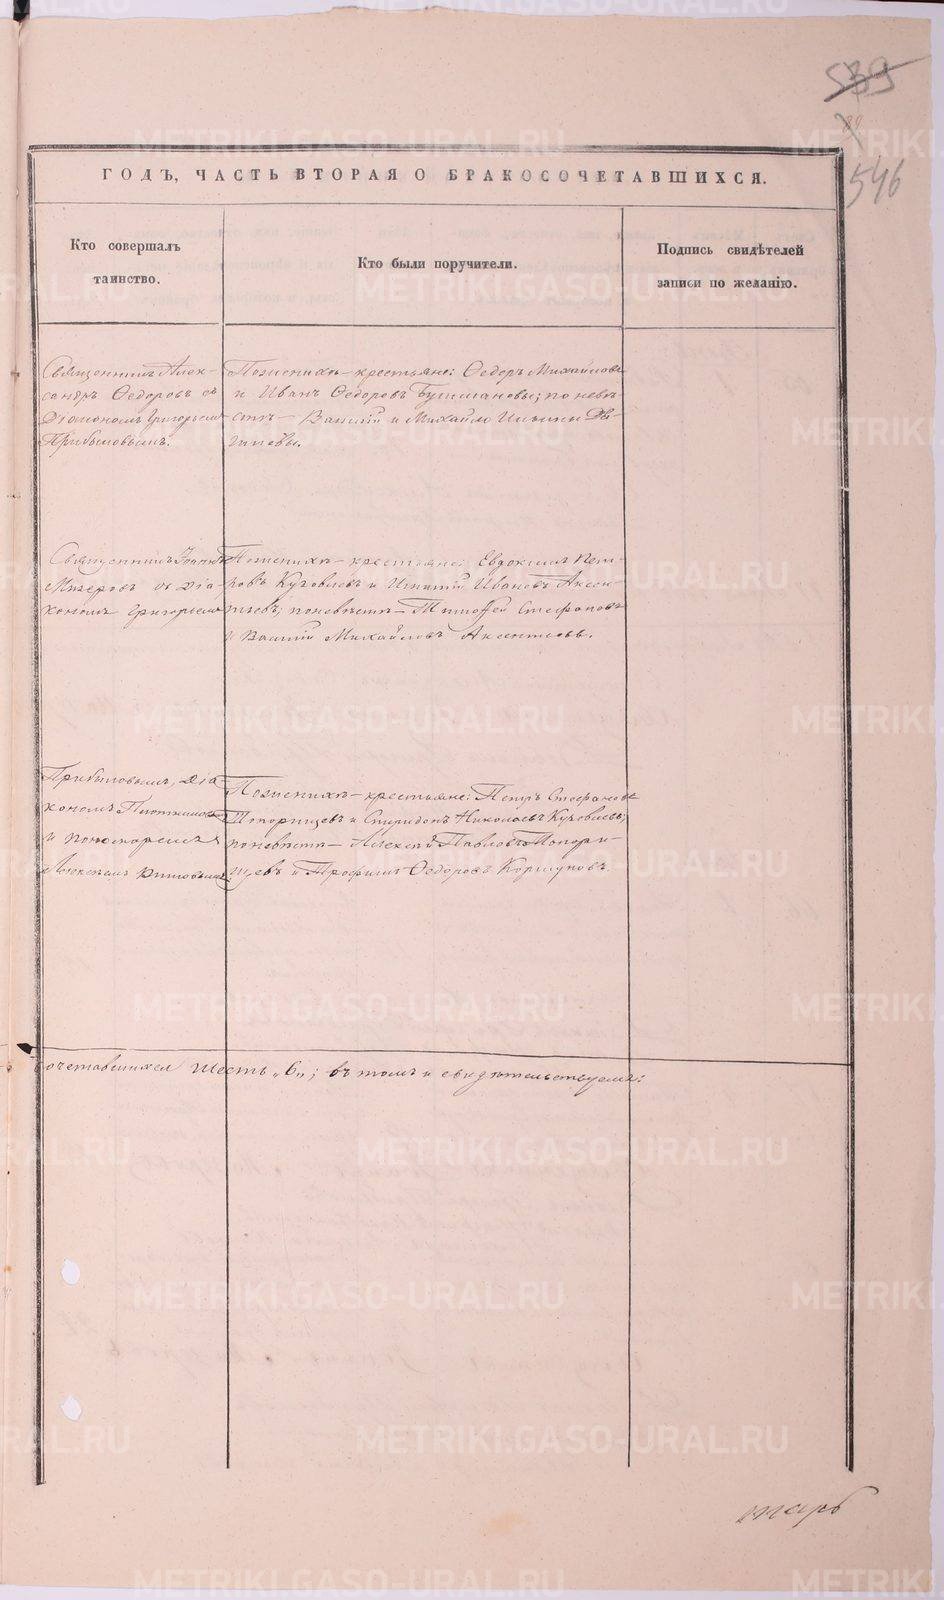 539
546
ГОДЪ, ЧАСТЬ ВТОРАЯ О БРАКОСОЧЕТАВШИХСЯ.
Кто совершалъ
таинство.
Кто были поручители.
Подпись свидѣтелей
записи по желанію.
Священникъ Алек-
сандръ Ѳедоровъ съ
Діакономъ Григорьемъ
Прибыловымъ.
По женихѣ — крестьяне: Ѳедоръ Михайловъ
и Иванъ Ѳедоровъ; по невѣ-
стѣ — Василій и Михайло Ильины
Священникъ Іоаннъ
съ діа-
кономъ Григорьемъ
По женихѣ — крестьяне: Евдокимъ Пет-
ровъ Кузовлевъ и Игнатій Ивановъ Аксен-
тьевъ; по невѣстѣ — Тимофей Стефановъ
и Василій Михайловъ Аксентьевъ.
Прибыловымъ, діа
кономъ
и пономаремъ
Алексѣемъ
По женихѣ — крестьяне: Петръ Стефановъ
Топорищевъ и Спиридонъ Николаевъ Кузовлевъ;
по невѣстѣ — Алексѣй Павловъ Топори-
щевъ и Трофимъ Ѳедоровъ Коршуновъ.
очетавшихся шесть „6„; въ томъ и свидѣтельствуемъ:
тарь
METRIKI.GASO-URAL.RU